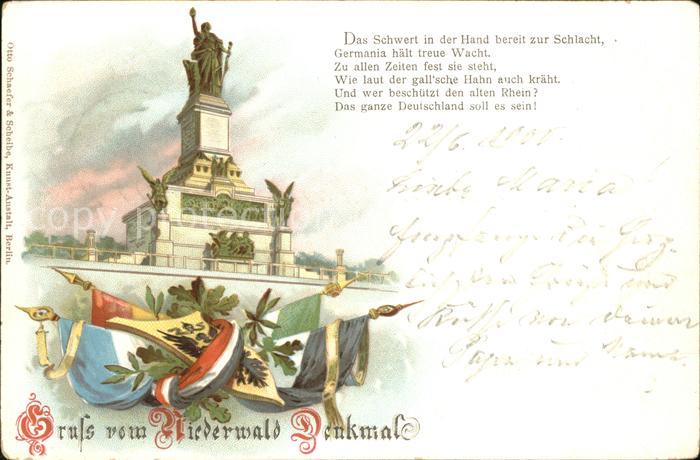 Otto Schaefer & Scheibe, Kunst-Anstalt, Berlin.
Das Schwert in der Hand bereit zur Schlacht,
Germania hält treue Wacht.
Zu allen Zeiten fest sie steht,
Wie laut der gall'sche Hahn auch kräht.
Und wer beschützt den alten Rhein?
Das ganze Deutschland soll es sein!
22/6. 1900.
Liebe Maria!
Empfange die herz
lichsten Grüße und
Küsse von deinem
Papa und Mama.
copy protection
Gruss vom Niederwald Denkmal